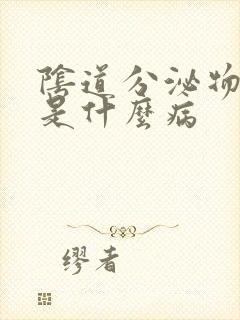 陰道分泌物
是什麼病
缪者